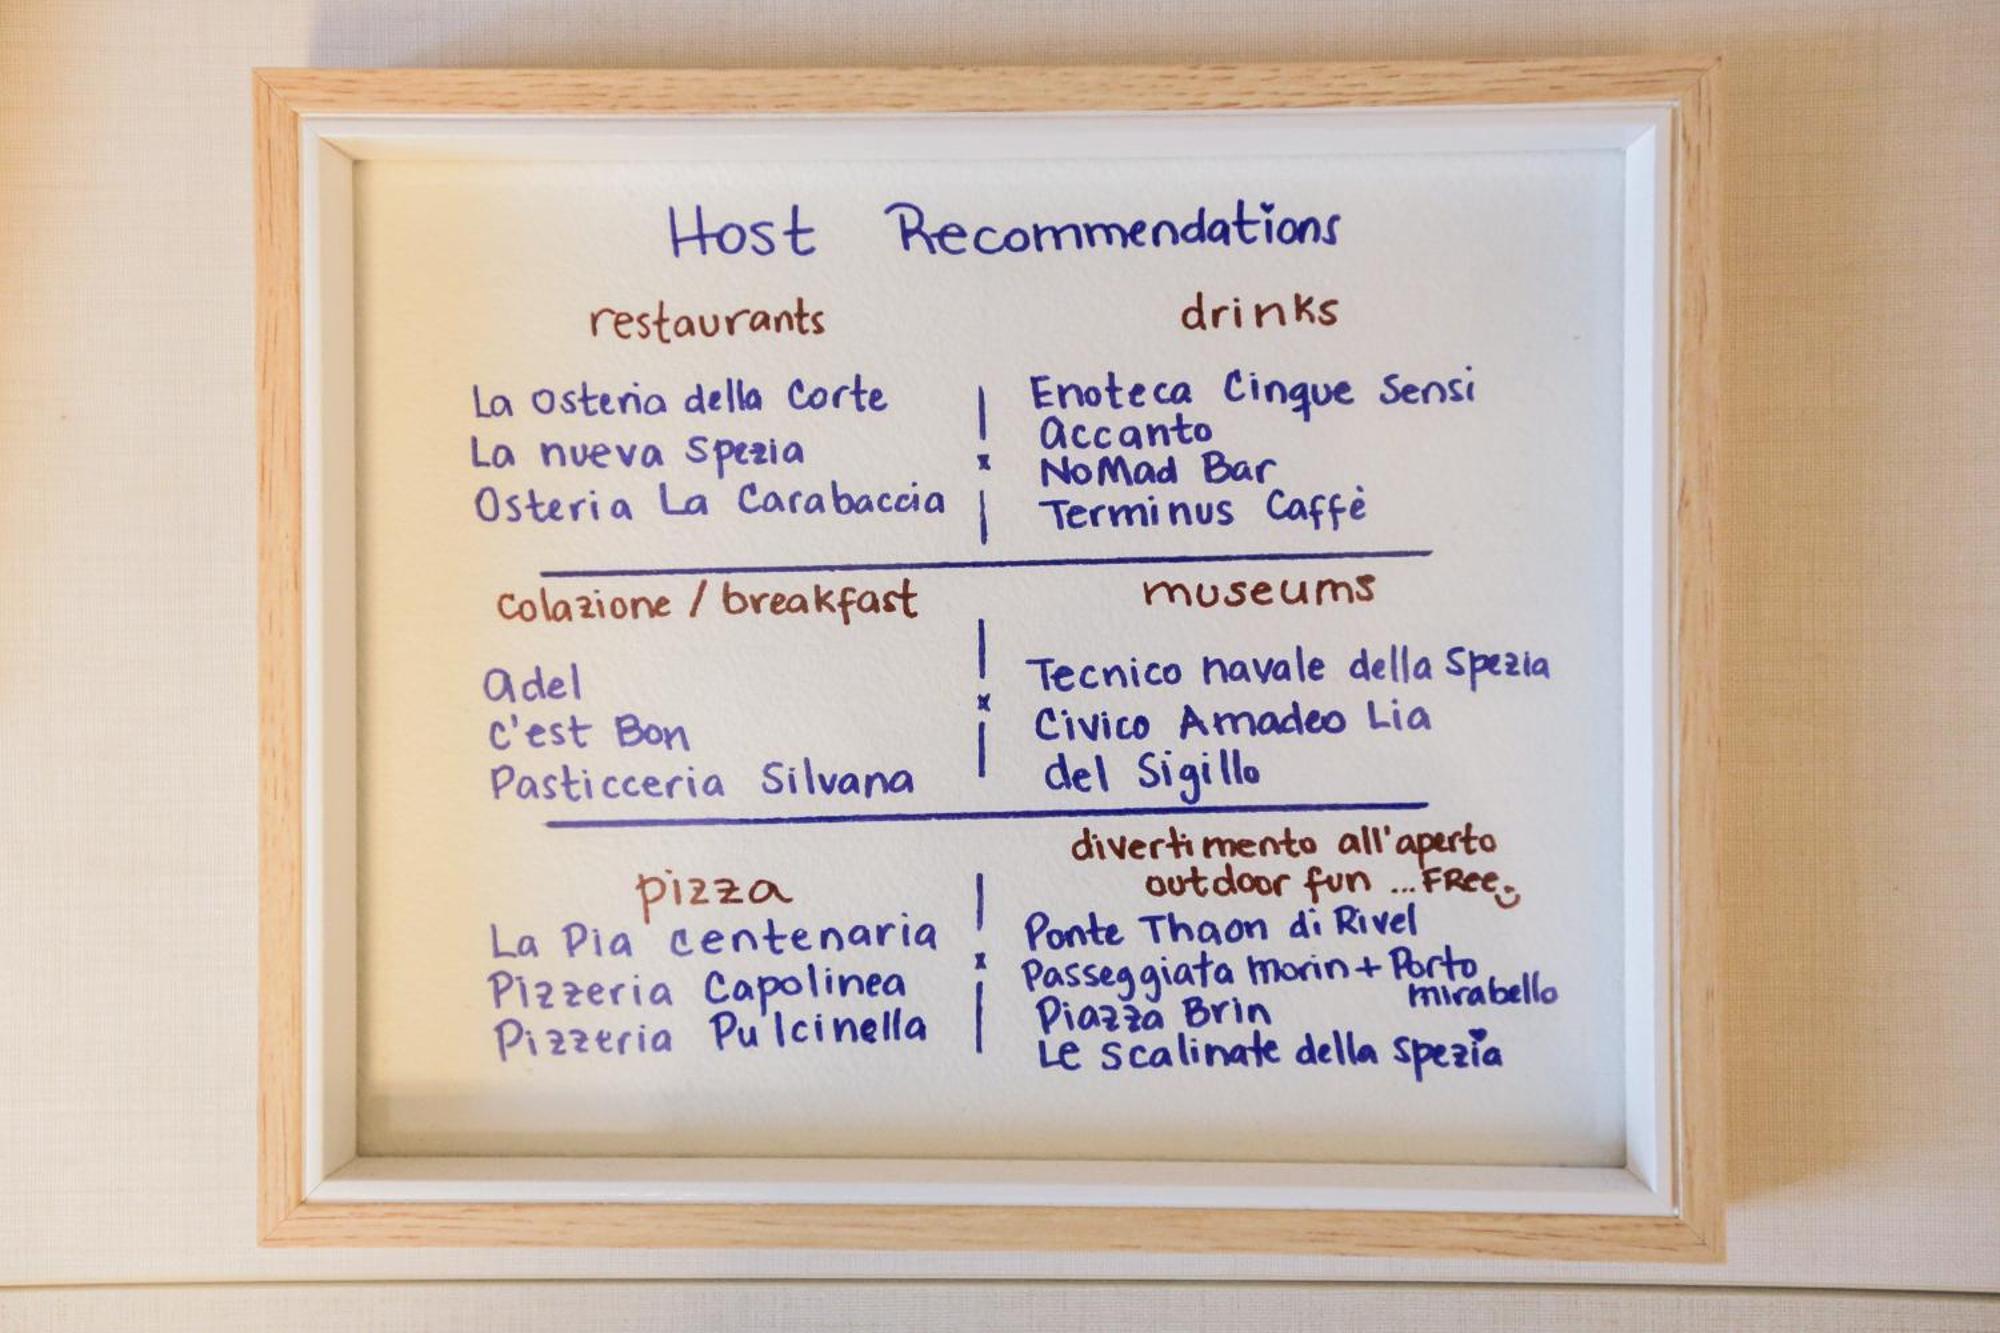 Host Recommendations
restaurants
La Osteria della Corte
La nueva Spezia
Osteria La Carabaccia
drinks
Enoteca Cinque Sensi
Accanto
NoMad Bar
Terminus Caffè
colazione / breakfast
Adel
c'est Bon
Pasticceria Silvana
museums
Tecnico navale della Spezia
Civico Amadeo Lia
del Sigillo
pizza
La Pia centenaria
Pizzeria Capolinea
Pizzeria Pulcinella
divertimento all'aperto
outdoor fun ... FRee
Ponte Thaon di Rivel
Passeggiata morin + Porto
mirabello
Piazza Brin
Le scalinate della spezia